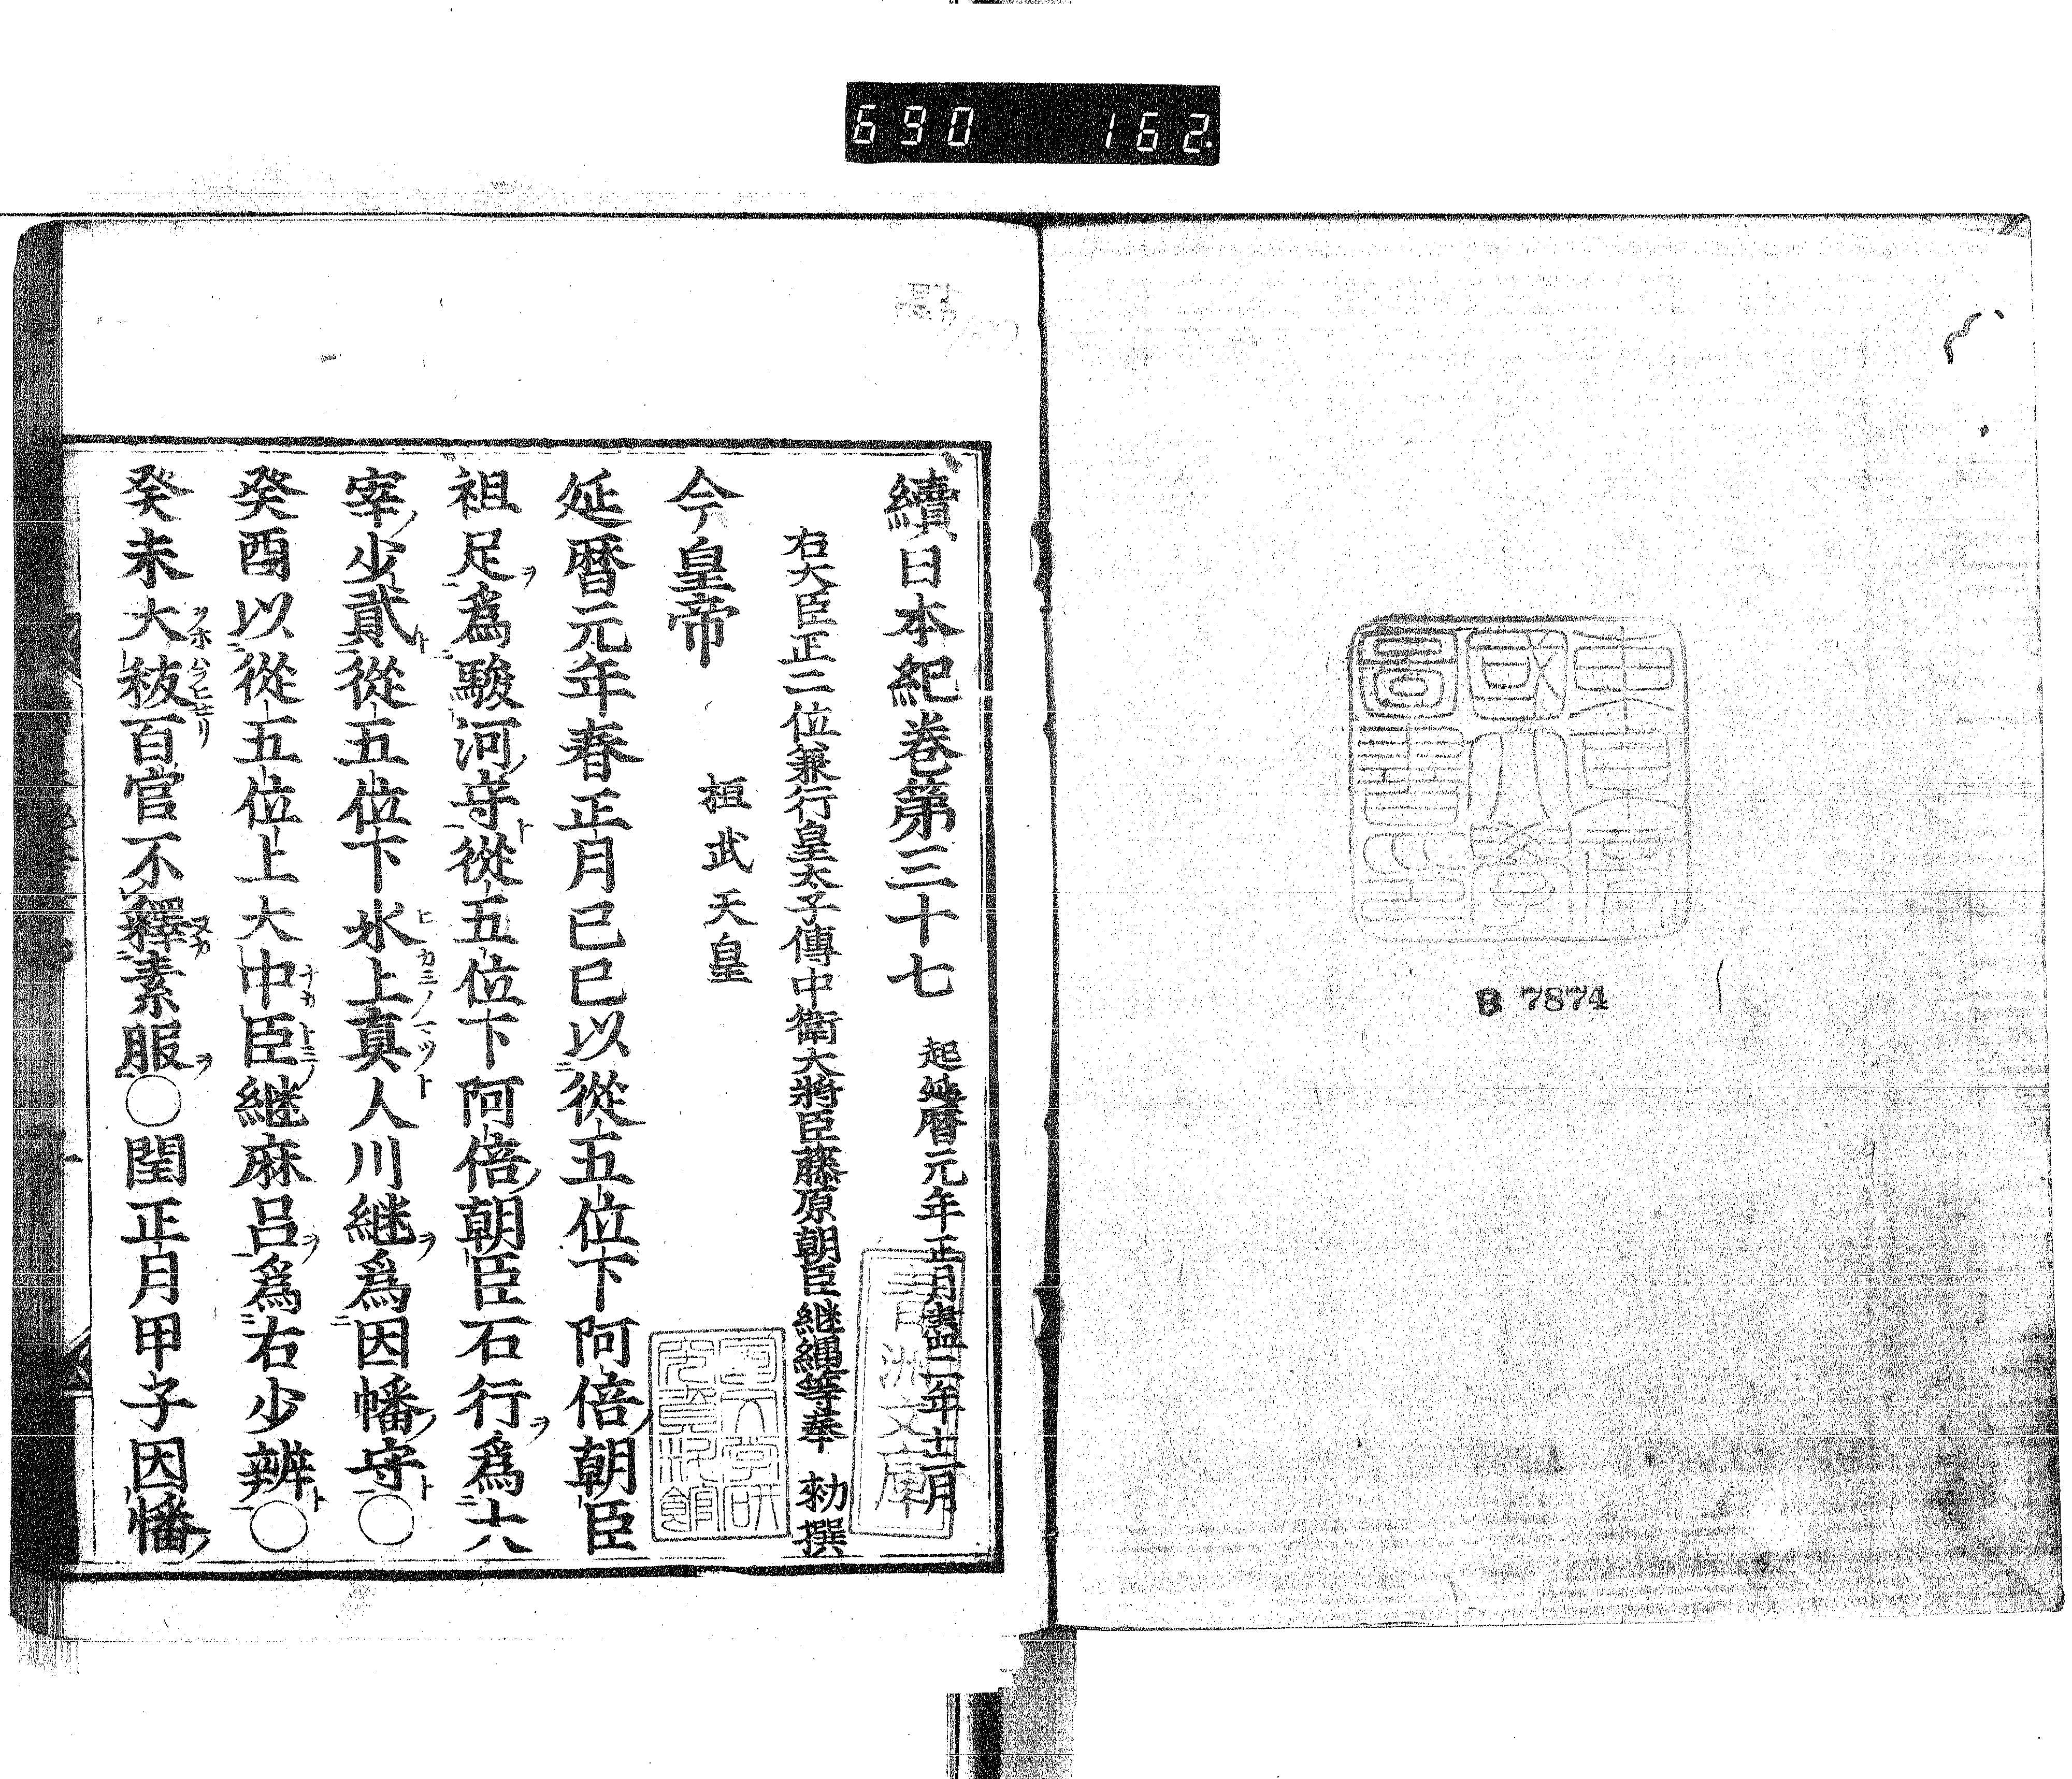 690 162
東京帝國大學圖書印
B 7874
續日本紀卷第三十七 起延暦元年正月盡四二年十二月
右大臣正二位兼行皇太子傳中衛大將臣藤原朝臣継縄等奉 勅撰
今皇帝 桓武天皇
延暦元年春正月己巳以從五位下阿倍朝臣
祖足爲駿河守從五位下阿倍朝臣石行爲大
宰少貳從五位下氷上真人川継爲因幡守〇
癸酉以從五位上大中臣継麻呂爲右少辨〇
癸未大秡百官不釋素服〇閏正月甲子因幡
青洲文庫